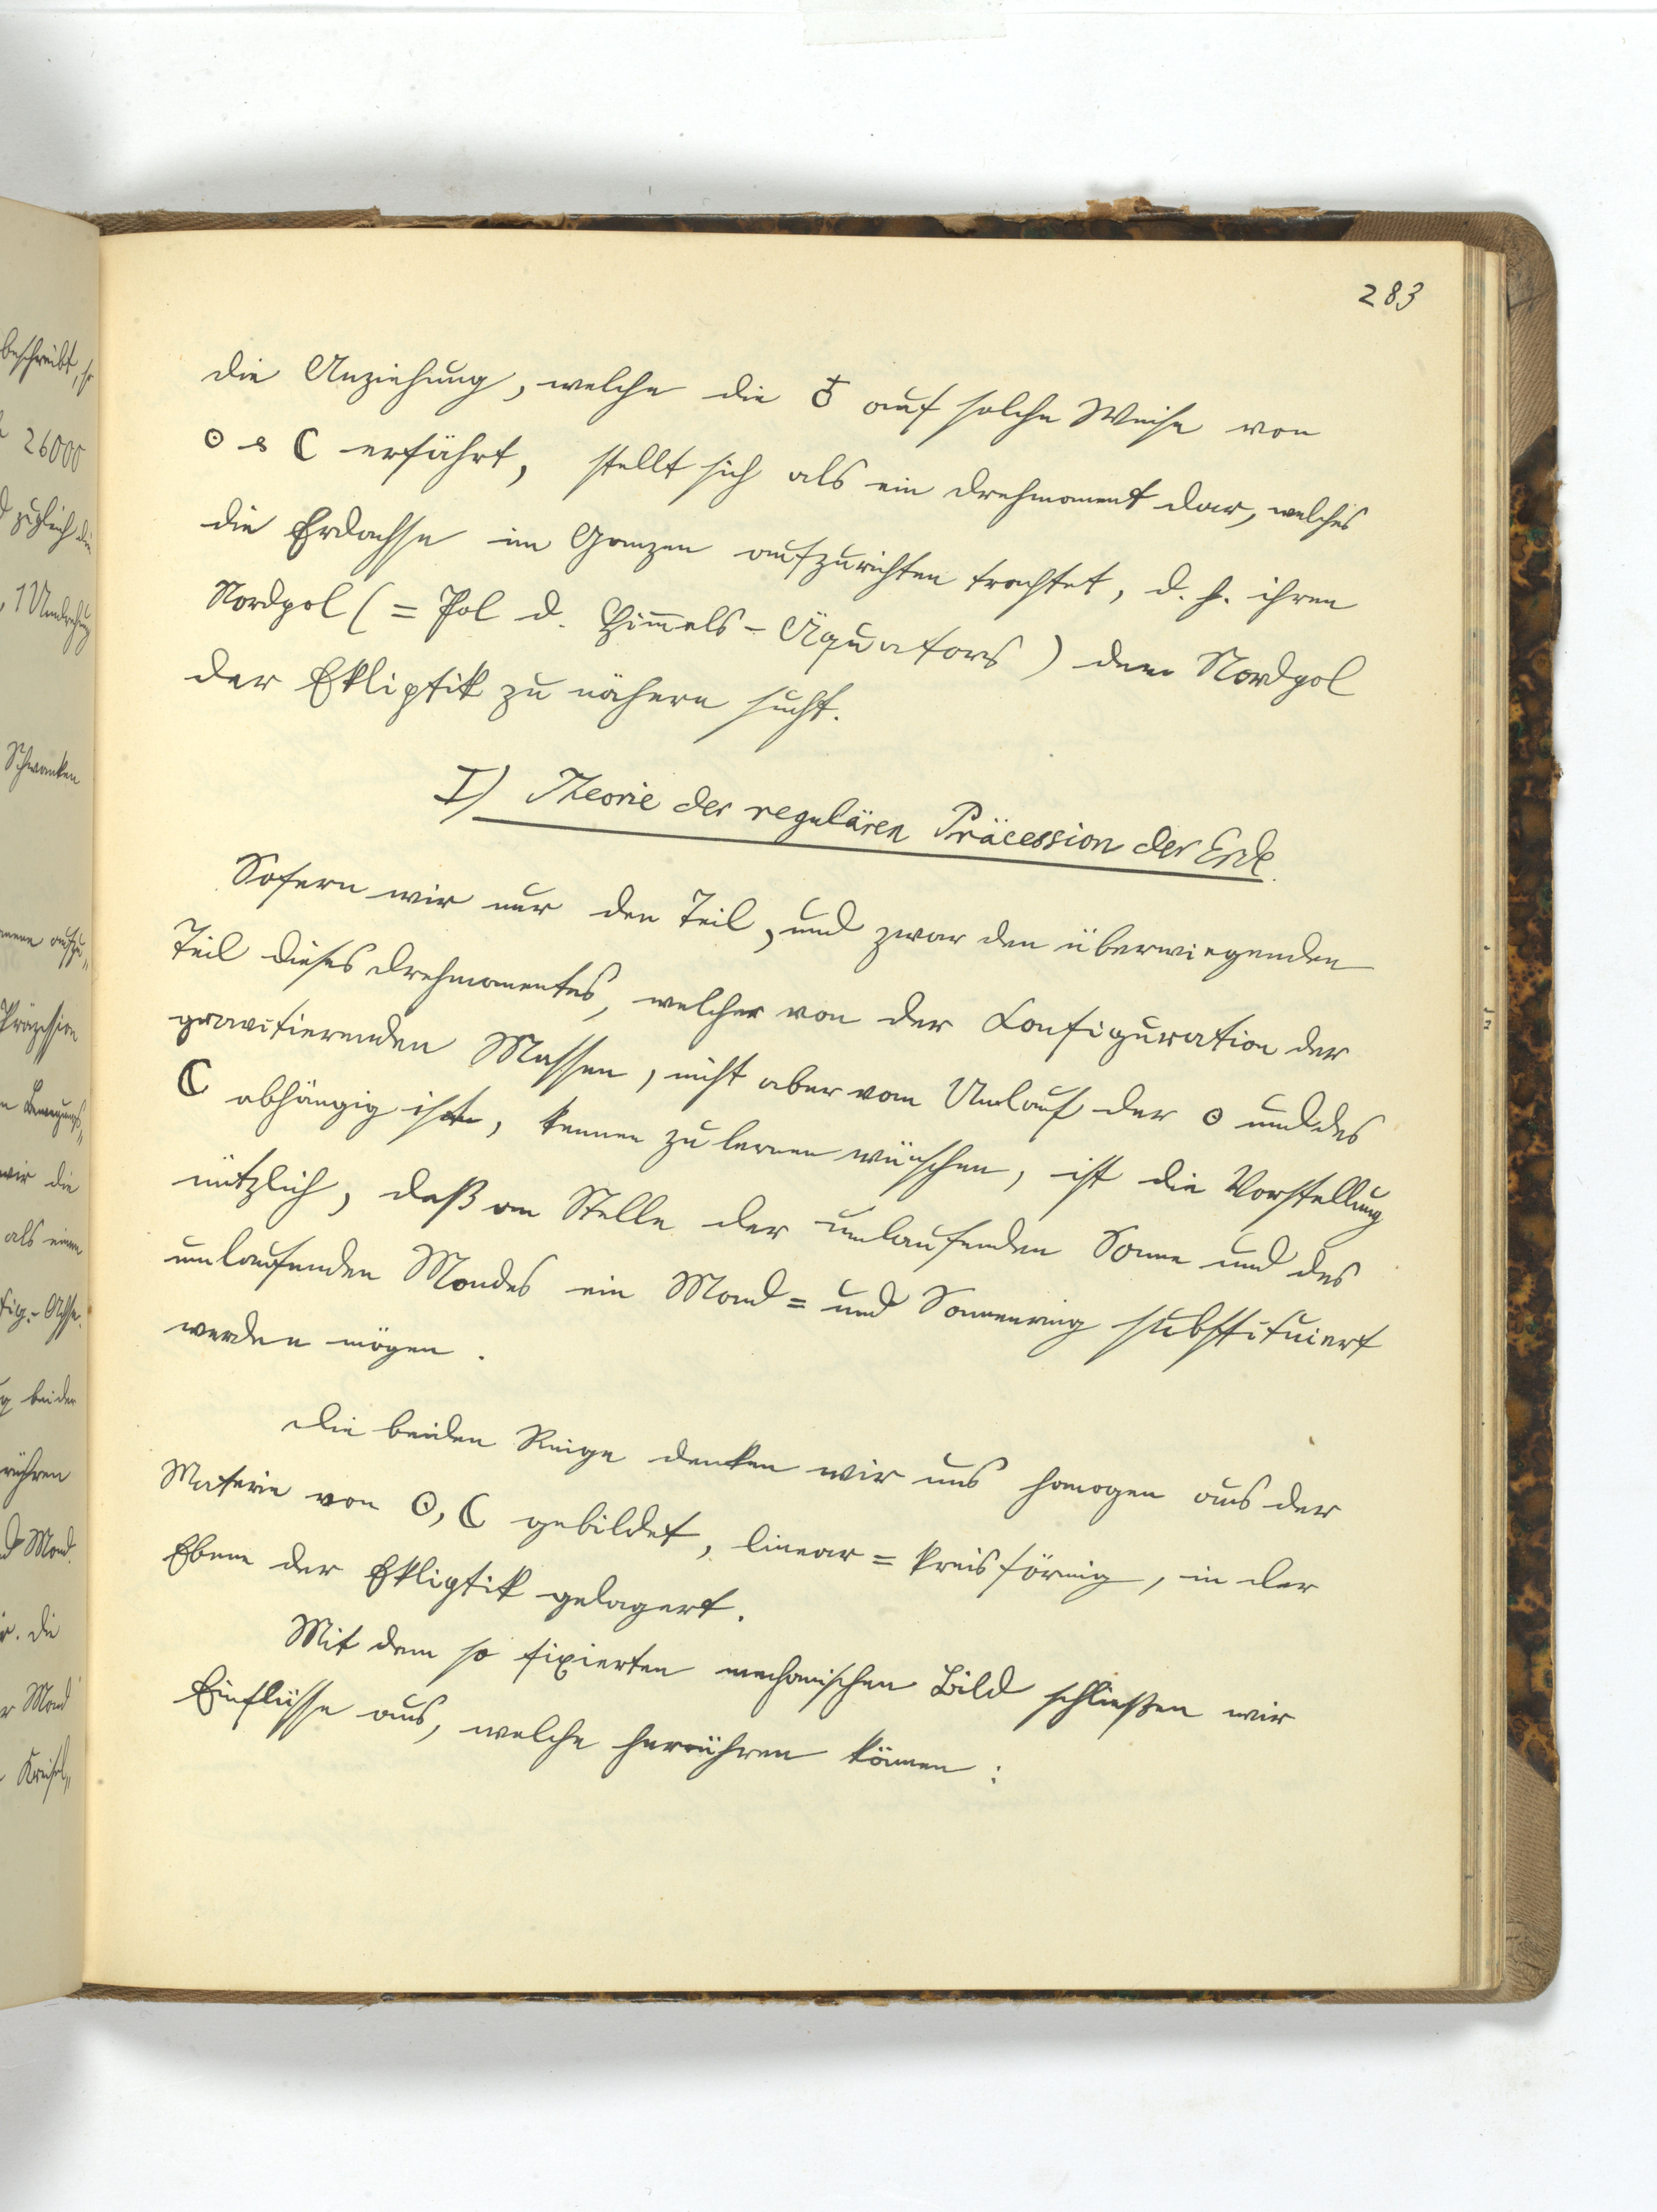 283
die Anziehung, welche die ♁ auf solche Weise von
☉ & ☾ erfährt, stellt sich als ein Drehmoment dar, welches
die Erdachse im Ganzen aufzurichten trachtet, d. h. ihren
Nordpol (= Pol d. Him̄els-Äquators) dem Nordpol
der Ekliptik zu nähern sucht.
I) Theorie der regulären Präcession der Erde.
Sofern wir nur den Teil, und zwar den überwiegenden
Teil dieses Drehmomentes, welcher von der Configuration der
gravitierenden Massen, nicht aber vom Umlauf der ☉ und des
☾ abhängig ist, kennen zu lernen wünschen, ist die Vorstellung
nützlich, daß an Stelle der umlaufenden Sonne und des
umlaufenden Mondes ein Mond= und Sonnenring substituiert
werden mögen.
Die beiden Ringe denken wir uns homogen aus der
Materie von ☉, ☾ gebildet, linear=kreisförmig, in der
Ebene der Ekliptik gelagert.
Mit dem so fixierten mechanischen Bild schließen wir
Einflüsse aus, welche herrühren können:
beschreibt, so
26000
zugleich die
, 1 Umdrehung
Schwanken
Präzession
wir die
als einen
fig.-Achse.
beiden
rühren
Mond
die
Mond
Kreisel„